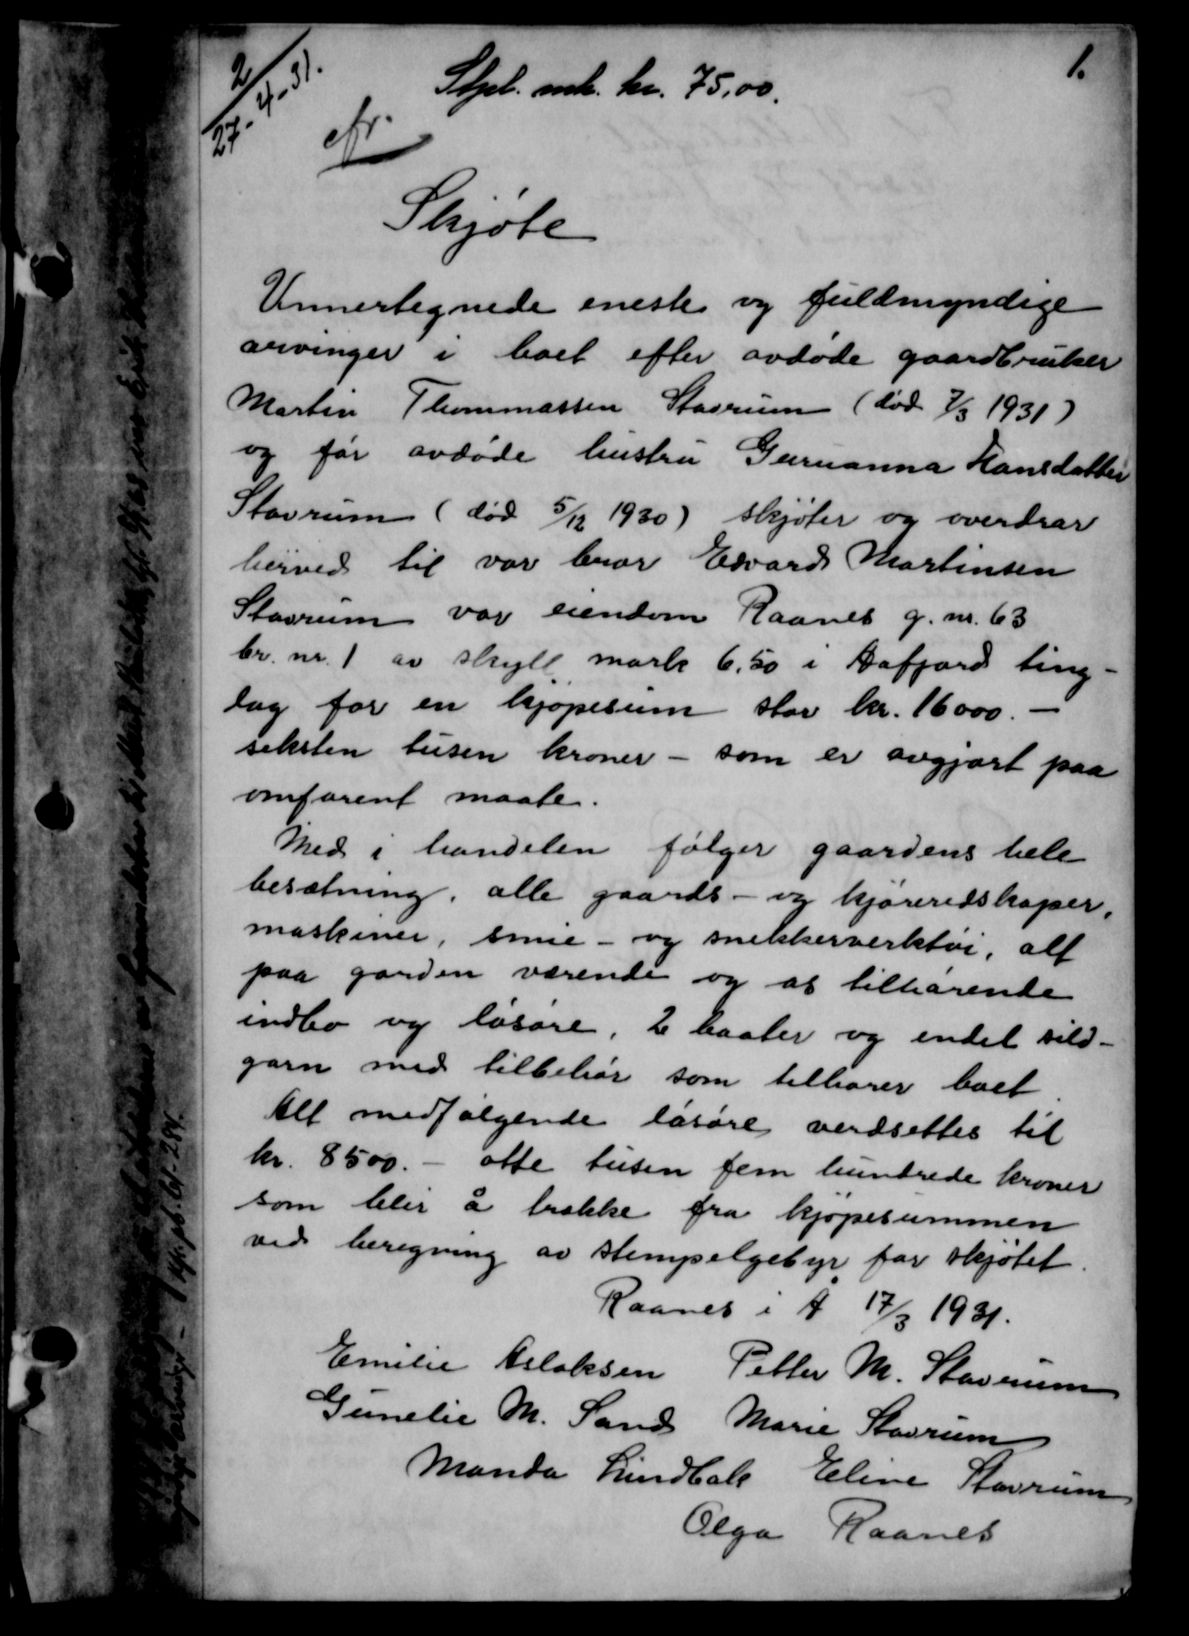 2
27-4-31.
Stpl. mk. kr. 75,00.
1.
cfr.
Skjøte
Unnertegnede eneste og fuldmyndige
arvinger i boet efter avdøde gaardbruker
Martin Thommassen Stavrum (død 7/3 1931)
og før avdøde hustru Guruanna Hansdatter
Stavrum (død 5/12 1930) skjøter og overdrar
herved til vor bror Edvard Martinsen
Stavrum vor eiendom Raanes g. nr. 63
br. nr. 1 av skyll mark 6,50 i Aafjord ting-
lag for en kjøpesum stor kr. 16000.-
seksten tusen kroner - som er avgjort paa
omforent maate.
Med i handelen følger gaardens hele
besætning, alle gaards- og kjøreredskaper,
maskiner, smie- og snekkerverktøi, alt
paa garden værende og os tilhørende
indbo og løsøre, 2 baater og endel sild-
garn med tilbehør som tilhører boet.
Alt medfølgende løsøre verdsettes til
kr. 8500.- otte tusen fem hundrede kroner
som blir å trække fra kjøpesummen
ved beregning av stempelgebyr for skjøtet.
Raanes i Å 17/3 1931.
Emilie Aslaksen Petter M. Stavrum
Gunelie M. Sand Marie Stavrum
Manda Lindbak Eline Stavrum
Olga Raanes